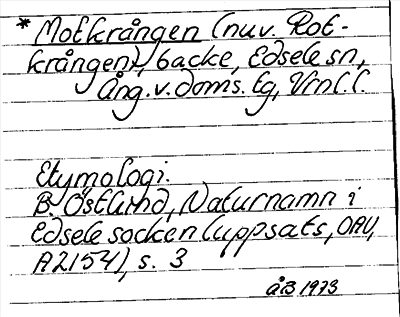 * Motkrången (nuv. Rot-
krången), backe, Edsele sn,
Ång.v.doms.tg, Vrnl.l.
Etymologi.
B. Östlund, Naturnamn i
Edsele socken (uppsats, OAU,
A2154), s. 3
ÅB 1973